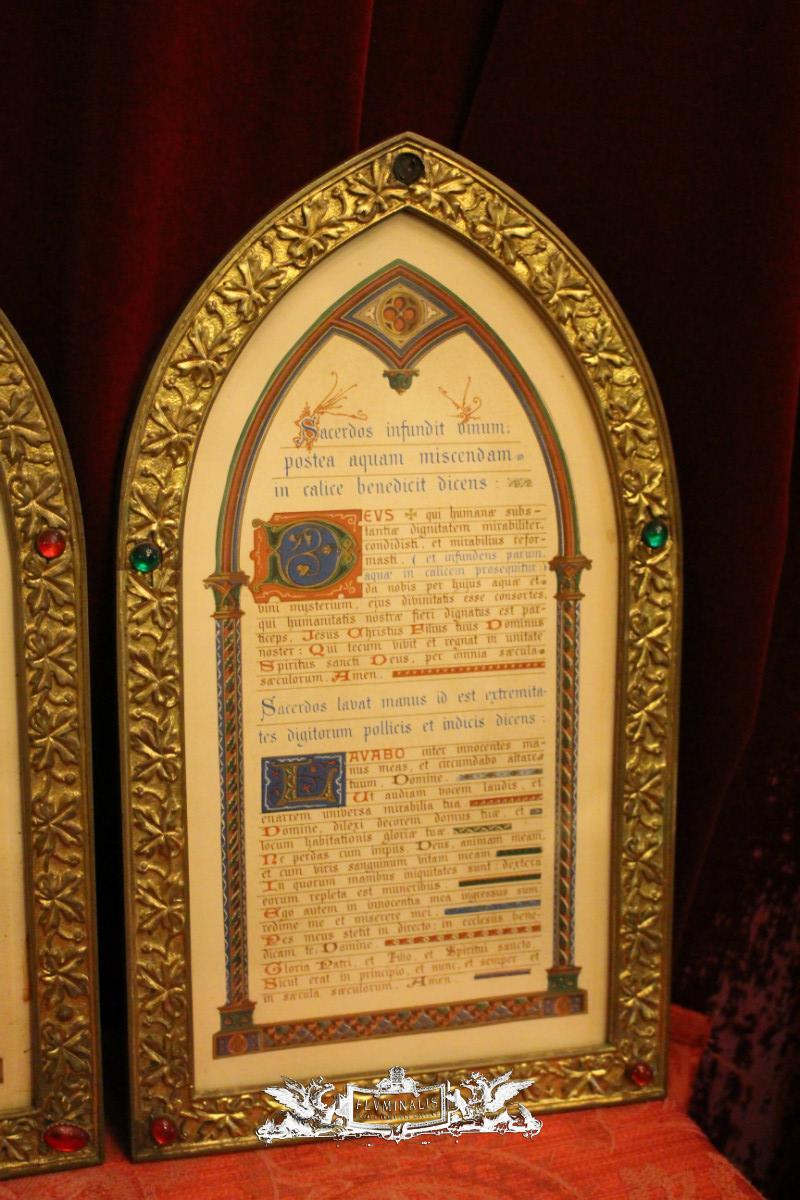 Sacerdos infundit vinum;
postea aquam miscendam
in calice benedicit dicens:
DEVS ✠ qui humanæ subs-
tantiæ dignitatem mirabiliter,
condidisti, et mirabilius refor-
masti, (et infundens parum
aquæ in calicem prosequitur)
da nobis per hujus aquæ et
vini mysterium, ejus divinitatis esse consortes,
qui humanitatis nostræ fieri dignatus est par-
ticeps, Jesus Christus Filius tuus Dominus
noster: Qui tecum vivit et regnat in unitate
Spiritus sancti Deus, per omnia sæcula
sæculorum. Amen.
Sacerdos lavat manus id est extremita-
tes digitorum pollicis et indicis dicens:
LAVABO inter innocentes ma-
nus meas, et circumdabo altare
tuum, Domine.
Ut audiam vocem laudis, et
enarrem universa mirabilia tua.
Domine, dilexi decorem domus tuæ, et
locum habitationis gloriæ tuæ.
Ne perdas cum impiis Deus, animam meam,
et cum viris sanguinum vitam meam
In quorum manibus iniquitates sunt: dextera
eorum repleta est muneribus.
Ego autem in innocentia mea ingressus sum:
redime me et miserere mei.
Pes meus stetit in directo: in ecclesiis bene-
dicam te, Domine.
Gloria Patri, et Filio, et Spiritui sancto.
Sicut erat in principio, et nunc, et semper et
in sæcula sæculorum. Amen.
FLVMINALIS